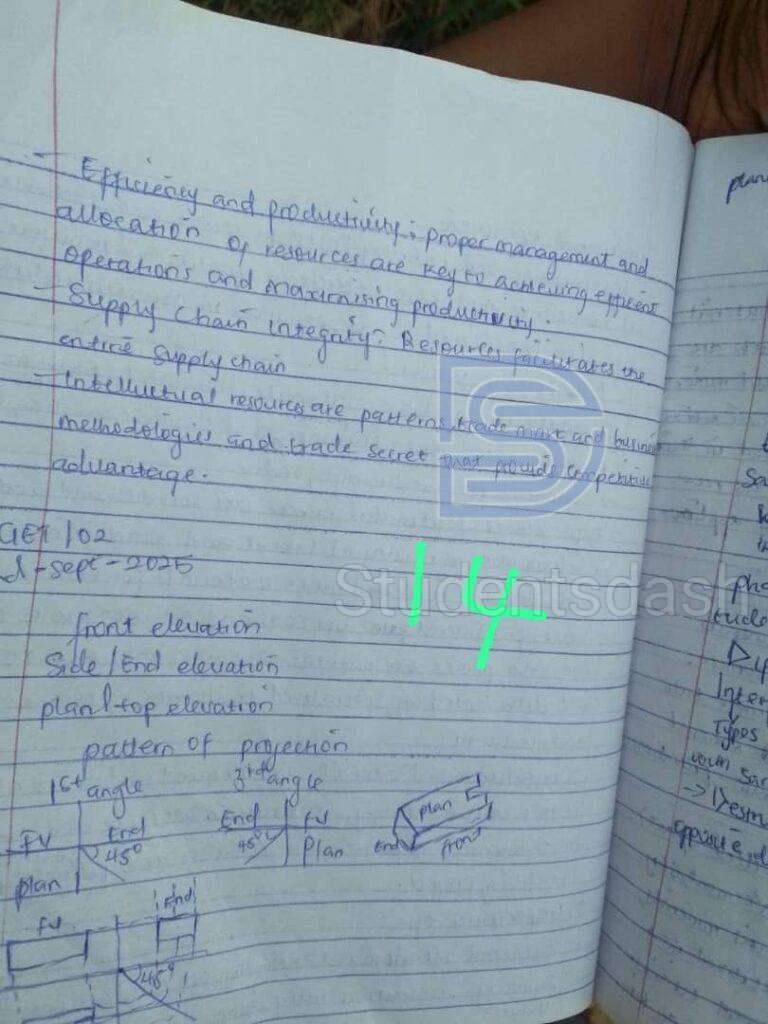 - Efficiency and productivity: proper management and
allocation of resources are key to achieving efficient
operations and maximising productivity.
- Supply Chain integrity: Resources facilitates the
entire supply chain
- Intellectual resources are patterns, trade mark and
methodologies and trade secret that provide competitive
advantage.
GET 102
-Sept-2025
front elevation
Side/End elevation
plan/top elevation
pattern of projection
1st angle
3rd angle
FV
End
45°
plan
End
FV
45°
Plan
plan
End
front
FV
End
45°
14
Studentsdash
plan
Types